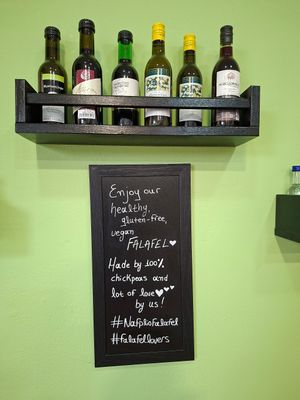 Enjoy our
healthy,
gluten-free,
vegan
FALAFEL
Made by 100%
chickpeas and
lot of love
by us!
#NafplioFalafel
#falafellovers